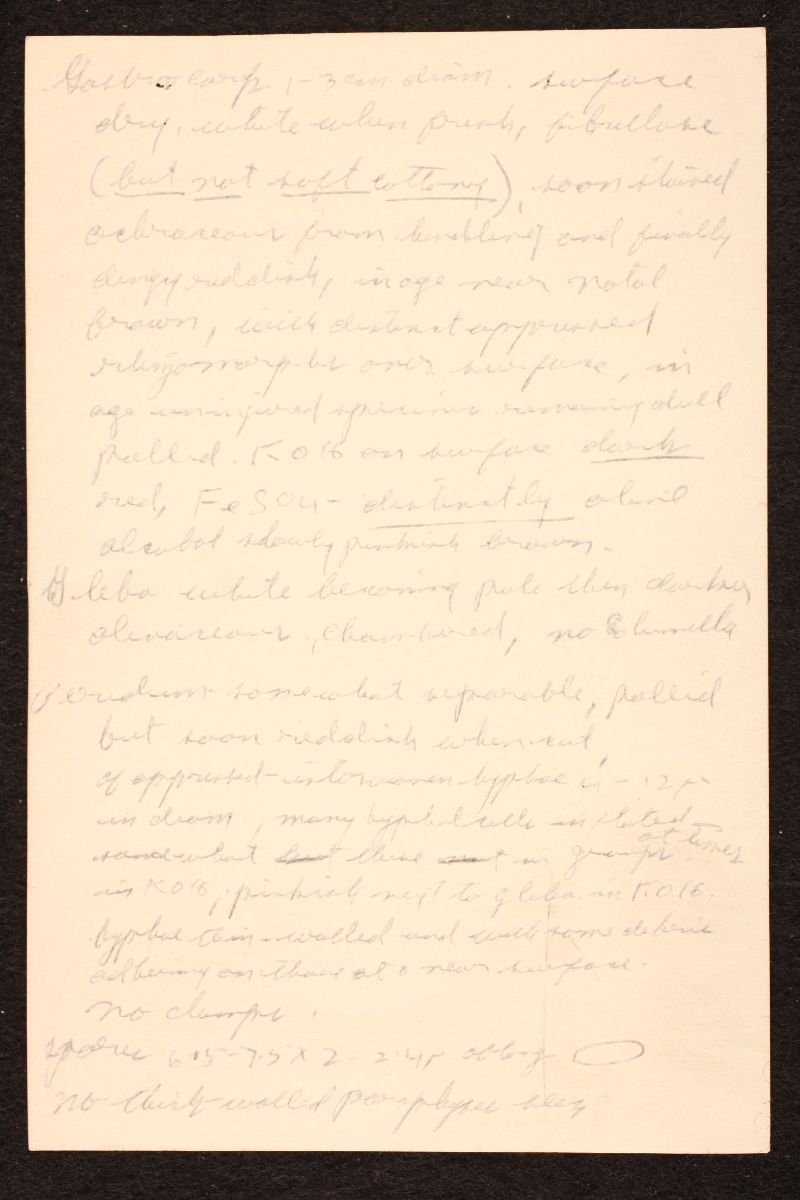 Gastrocarp 1-3 cm diam. surface
dry, white when fresh, fibrillose
(but not soft cottony), soon stained
ochraceous from handling and finally
dingy reddish, in age near natal
brown, with distinct appressed
rhizomorphs over surface, in
age uninjured specimens remaining dull
pallid. KOH on surface dark
red, FeSO4 - distinctly olive
alcohol slowly pinkish brown.
Gleba white becoming pale then darker
olivaceous, chambered, no columella
Peridium somewhat separable, pallid
but soon reddish when cut,
of appressed-interwoven hyphae - 12 µ
in diam, many hyphal cells inflated
somewhat but these not in groups at times
in KOH, pinkish next to gleba in KOH.
hyphae thin-walled and with some debris
adhering on those at or near surface.
no clamps.
Spores 6.5-7.5 x 2-2.4µ oblong
no thick-walled paraphyses seen